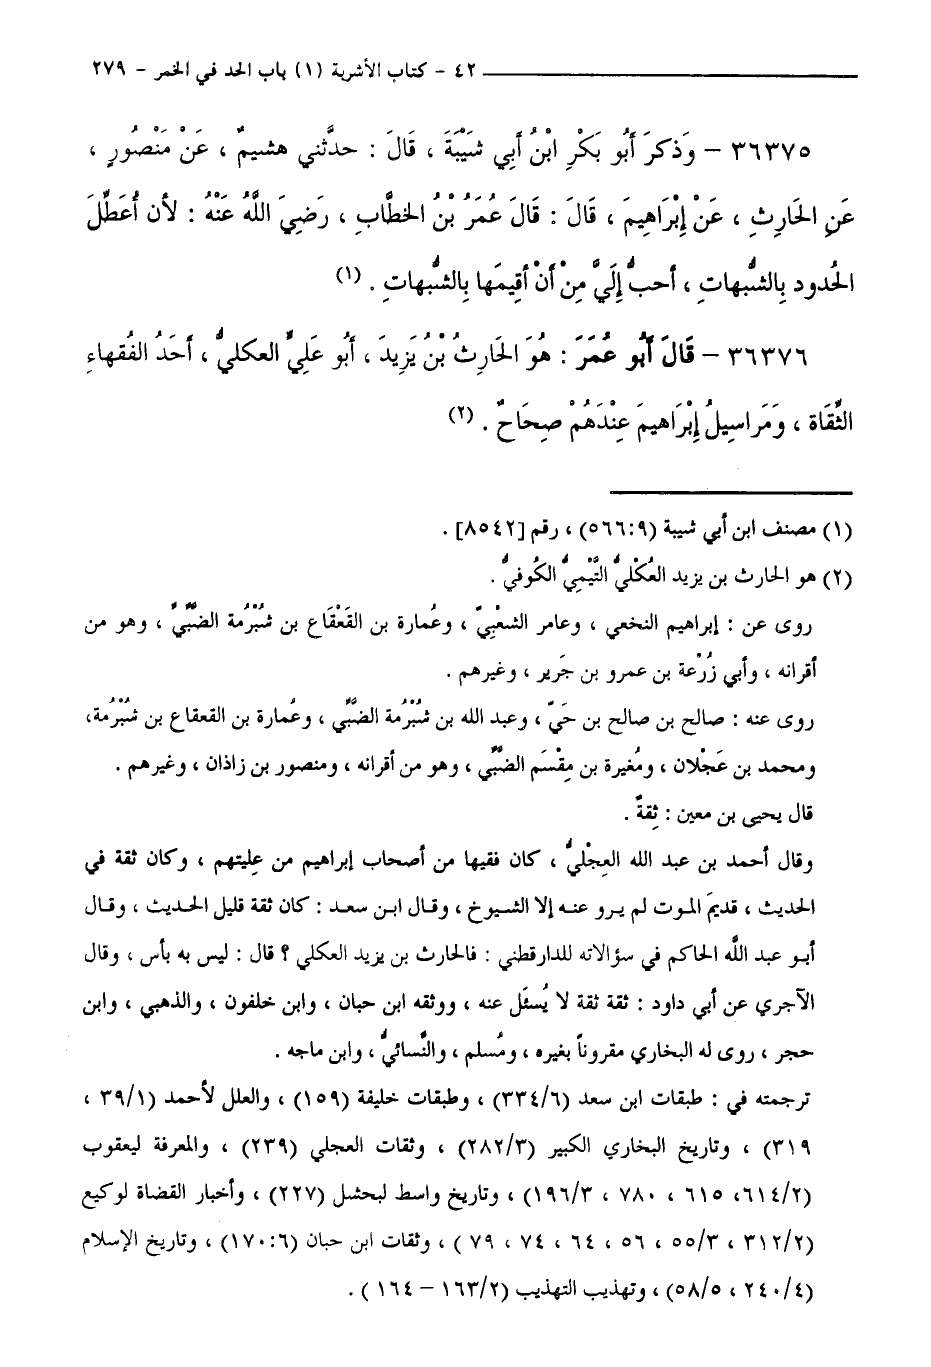 ٤٢ - كتاب الأشربة (١) باب الحد في الخمر - ٢٧٩
٣٦٣٧٥ - وَذكرَ أَبُو بَكْرِ ابْنُ أَبِي شَيْبَةَ ، قَالَ : حدَّثني هشيمٌ ، عَنْ مَنْصُورٍ ،
عَنِ الحَارِثِ ، عَنْ إِبْرَاهِيمَ ، قَالَ : قَالَ عُمَرُ بْنُ الخطَّاب ، رَضِيَ اللَّهُ عَنْهُ : لأن أُعَطِّلَ
الحُدود بِالشُّبهاتِ ، أحبُّ إِلَيَّ مِنْ أَنْ أقِيمَها بِالشُّبهاتِ . (١)
٣٦٣٧٦ - قَالَ أَبُو عُمَرَ : هُوَ الحَارِثُ بْنُ يَزِيدَ ، أَبُو عَلِيٍّ العكليُّ ، أحَدُ الفُقهاءِ
الثِّقَاة ، وَمَراسِيلُ إِبْرَاهيمَ عِنْدَهُمْ صِحَاحٌ . (٢)
(١) مصنف ابن أبي شيبة (٩:٥٦٦) ، رقم [٨٥٤٢] .
(٢) هو الحارث بن يزيد العُكْليُّ التَّيْمِيُّ الكُوفيُّ .
روى عن : إبراهيم النخعي ، وعامر الشعْبيّ ، وعُمارة بن القَعْقَاع بن شُبْرُمة الضَّبِّيِّ ، وهو من
أقرانه ، وأبي زُرْعة بن عمرو بن جَرير ، وغيرهم .
روى عنه : صالح بن صالح بن حَيّ ، وعبد الله بن شُبْرُمة الضَّبِّي ، وعُمارة بن القعقاع بن شُبْرُمة،
ومحمد بن عَجْلان ، ومُغيرة بن مِقْسَم الضبِّي ، وهو من أقرانه ، ومنصور بن زاذان ، وغيرهم .
قال يحيى بن معين : ثِقةٌ .
وقال أحمد بن عبد الله العِجْليُّ ، كان فقيها من أصحاب إبراهيم من عِليتهم ، وكان ثقة في
الحديث ، قديمَ الموت لم يرو عنه إلا الشيوخ ، وقال ابن سعد : كان ثقة قليل الحديث ، وقال
أبو عبد اللَّه الحاكم في سؤالاته للدارقطني : فالحارث بن يزيد العكلي ؟ قال : ليس به بأس ، وقال
الآجري عن أبي داود : ثقة ثقة لا يُسئَل عنه ، ووثقه ابن حبان ، وابن خلفون ، والذهبي ، وابن
حجر ، روى له البخاري مقروناً بغيره ، ومُسلم ، والنَّسائيُّ ، وابن ماجه .
ترجمته في : طبقات ابن سعد (٦/٣٣٤) ، وطبقات خليفة (١٥٩) ، والعلل لأحمد (١/٣٩ ،
٣١٩) ، وتاريخ البخاري الكبير (٣/٢٨٢) ، وثقات العجلي (٢٣٩) ، والمعرفة ليعقوب
(٢/٦١٤، ٦١٥ ، ٧٨٠ ، ٣/١٩٦) ، وتاريخ واسط لبحشل (٢٢٧) ، وأخبار القضاة لوكيع
(٢/٣١٢ ، ٣/٥٥ ، ٥٦ ، ٦٤ ، ٧٤ ، ٧٩ ) ، وثقات ابن حبان (٦:١٧٠) ، وتاريخ الإسلام
(٤/٢٤٠ ، ٥/٥٨) ، وتهذيب التهذيب (٢/١٦٣ - ١٦٤ ) .